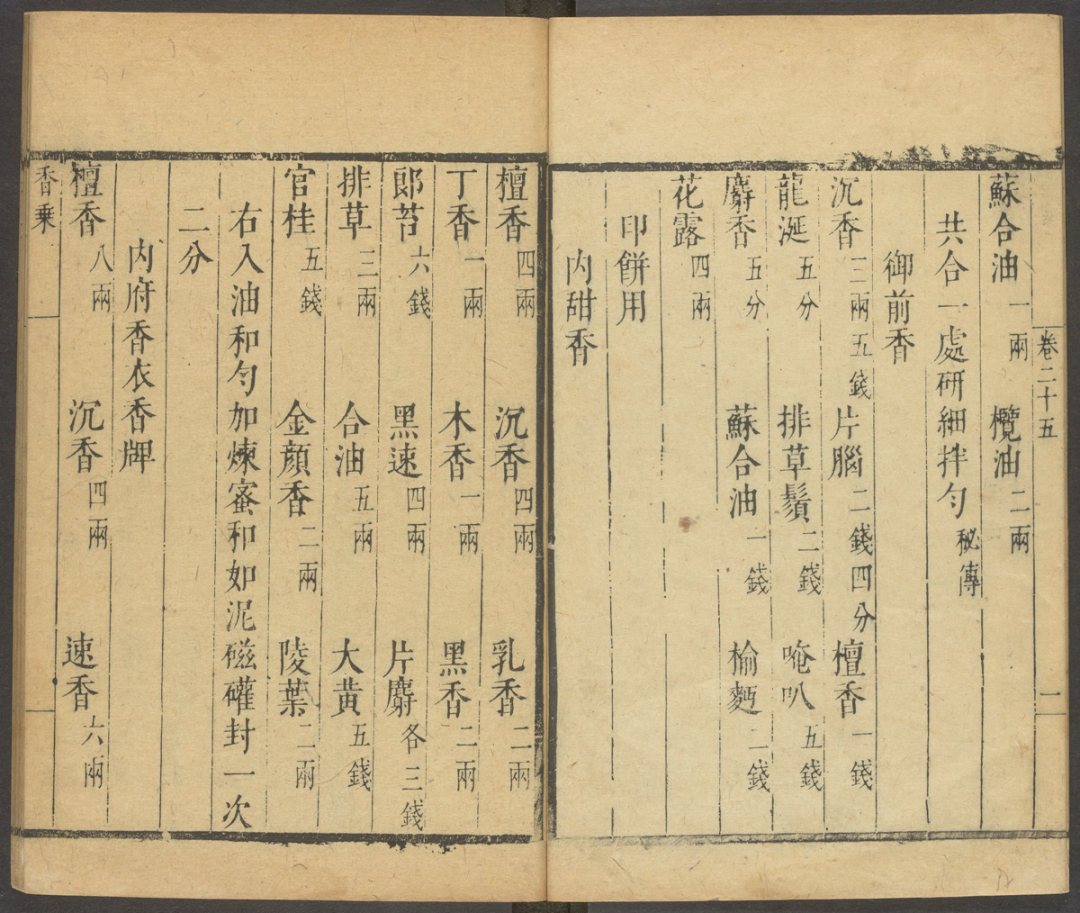 卷二十五 二
蘇合油一兩 欖油二兩
共合一處研細拌勻秘傳
御前香
沉香三兩五錢 片腦二錢四分 檀香一錢
龍涎五分 排草鬚二錢 唵叭五錢
麝香五分 蘇合油一錢 榆麪二錢
花露四兩
印餅用
内甜香
檀香四兩 沉香四兩 乳香二兩
丁香一兩 木香一兩 黑香二兩
郎苔六錢 黑速四兩 片麝各三錢
排草三兩 合油五兩 大黃五錢
官桂五錢 金顏香二兩 陵葉二兩
右入油和勻加煉蜜和如泥磁礶封一次
二分
内府香衣香牌
檀香八兩 沉香四兩 速香六兩
香乗